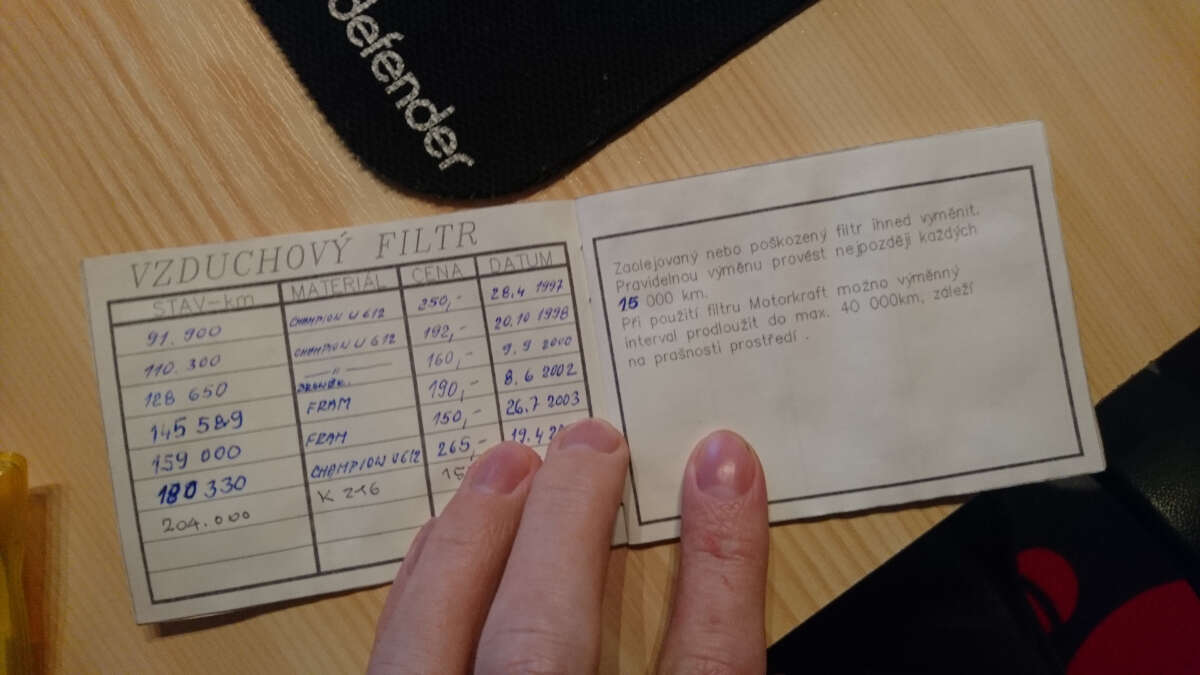 defender
VZDUCHOVÝ FILTR
STAV-km MATERIÁL CENA DATUM
91.900 CHAMPION U612 250,- 28.4 1997
110.300 CHAMPION U612 192,- 20.10 1998
128 650 —— 〃 —— 160,- 9.9 2000
145 589 FRAM 190,- 8.6 2002
159 000 FRAM 150,- 26.7 2003
180 330 CHAMPION U612 265,- 19.4
204.000 K 216
Zaolejovaný nebo poškozený filtr ihned vyměnit.
Pravidelnou výměnu provést nejpozději každých
15 000 km.
Při použití filtru Motorkraft možno výměnný
interval prodloužit do max. 40 000km, záleží
na prašnosti prostředí .